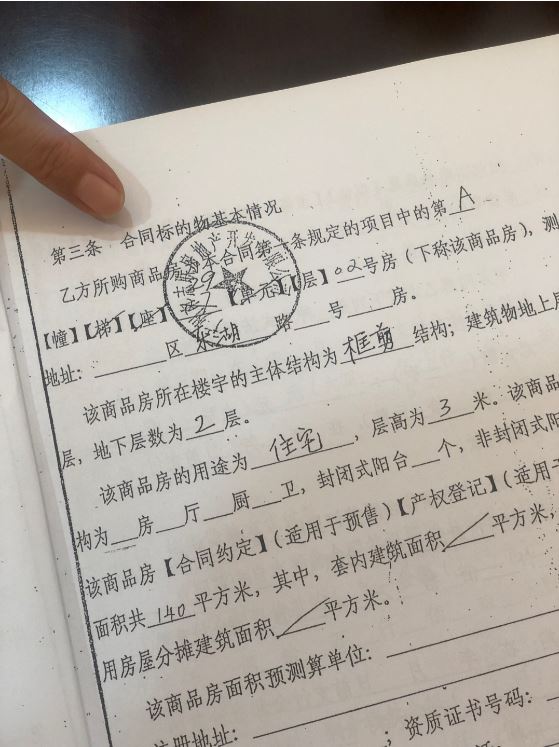 第三条 合同标的物基本情况
乙方所购商品房 本合同第一条规定的项目中的第 A
【幢】【梯】【座】 【单元】【层】02号房（下称该商品房），测
地址： 区 湖 路 号 房。
该商品房所在楼宇的主体结构为 框剪 结构；建筑物地上层
层，地下层数为 2 层。
该商品房的用途为 住宅 ，层高为 3 米。该商品
构为 房 厅 厨 卫，封闭式阳台 个，非封闭式阳
该商品房【合同约定】（适用于预售）【产权登记】（适用于
面积共 140 平方米，其中，套内建筑面积 平方米，
用房屋分摊建筑面积 平方米。
该商品房面积预测算单位：
注册地址： ；资质证书号码：